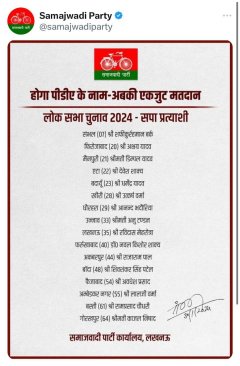 Samajwadi Party
@samajwadiparty
समाजवादी पार्टी
होगा पीडीए के नाम-अबकी एकजुट मतदान
लोक सभा चुनाव 2024 - सपा प्रत्याशी
संभल (07) श्री शफीकुर्रहमान बर्क
फिरोजाबाद (20) श्री अक्षय यादव
मैनपुरी (21) श्रीमती डिम्पल यादव
एटा (22) श्री देवेश शाक्य
बदायूँ (23) श्री धर्मेंद्र यादव
खीरी (28) श्री उत्कर्ष वर्मा
धौरहरा (29) श्री आनन्द भदौरिया
उन्नाव (33) श्रीमती अनु टण्डन
लखनऊ (35) श्री रविदास मेहरोत्रा
फर्रुखाबाद (40) डॉ0 नवल किशोर शाक्य
अकबरपुर (44) श्री राजाराम पाल
बाँदा (48) श्री शिवशंकर सिंह पटेल
फैजाबाद (54) श्री अवधेश प्रसाद
अम्बेडकर नगर (55) श्री लालजी वर्मा
बस्ती (61) श्री रामप्रसाद चौधरी
गोरखपुर (64) श्रीमती काजल निषाद
समाजवादी पार्टी कार्यालय, लखनऊ